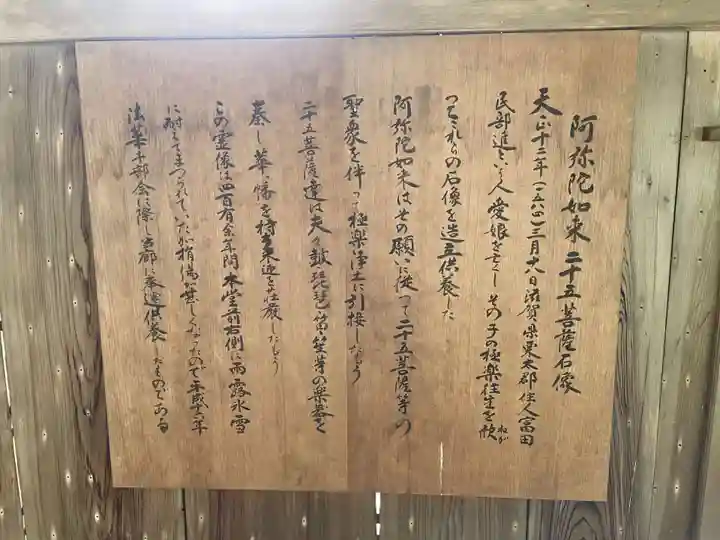 阿弥陀如来 二十五菩薩石像
天正十二年(一五八四)三月十八日滋賀県栗太郡住人富田
民部進という人 愛娘を亡くし その子の極楽往生を欣ねが
ってこれらの石像を造立供養した
阿弥陀如来はその願いに従って二十五菩薩等の
聖衆を伴って極楽浄土に引接したもう
二十五菩薩達は夫々鼓琵琶笛笙等の楽器を
奏し華幡を持ち来迎を荘厳したもう
この霊像は四百有余年間本堂前右側に雨露氷雪
に耐えてまつられていたが損傷が甚しくなったので平成十六年
法華千部会に際し当廊に奉遷供養したものである